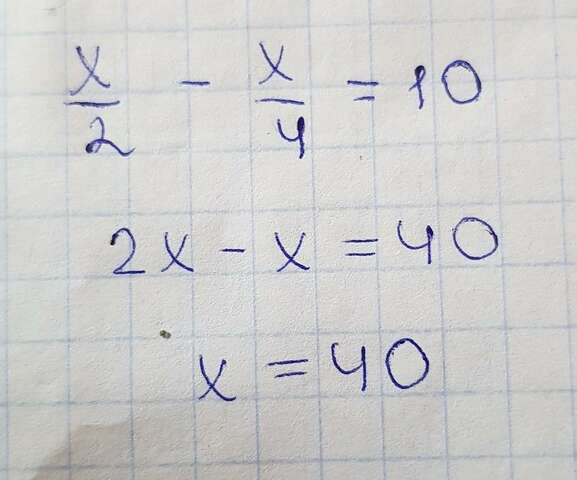 x/2 - x/4 = 10
2x - x = 40
x = 40